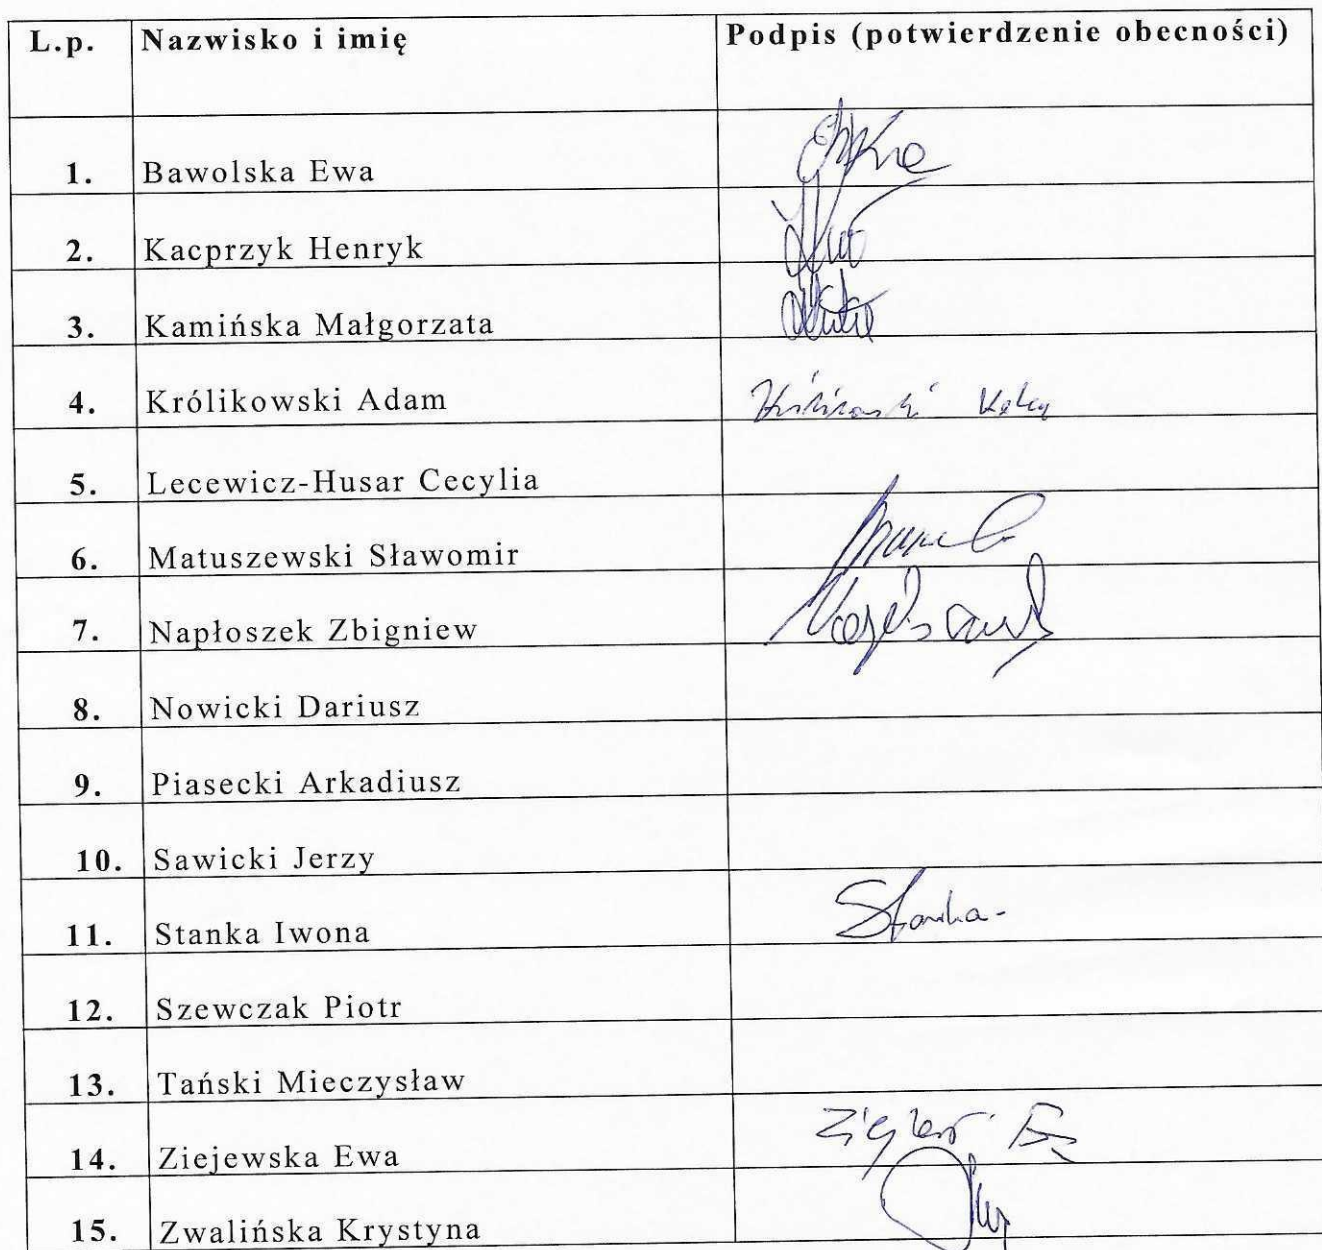 L.p. Nazwisko i imię Podpis (potwierdzenie obecności)
1. Bawolska Ewa
2. Kacprzyk Henryk
3. Kamińska Małgorzata
4. Królikowski Adam
5. Lecewicz-Husar Cecylia
6. Matuszewski Sławomir
7. Napłoszek Zbigniew
8. Nowicki Dariusz
9. Piasecki Arkadiusz
10. Sawicki Jerzy
11. Stanka Iwona Stanka
12. Szewczak Piotr
13. Tański Mieczysław
14. Ziejewska Ewa
15. Zwalińska Krystyna